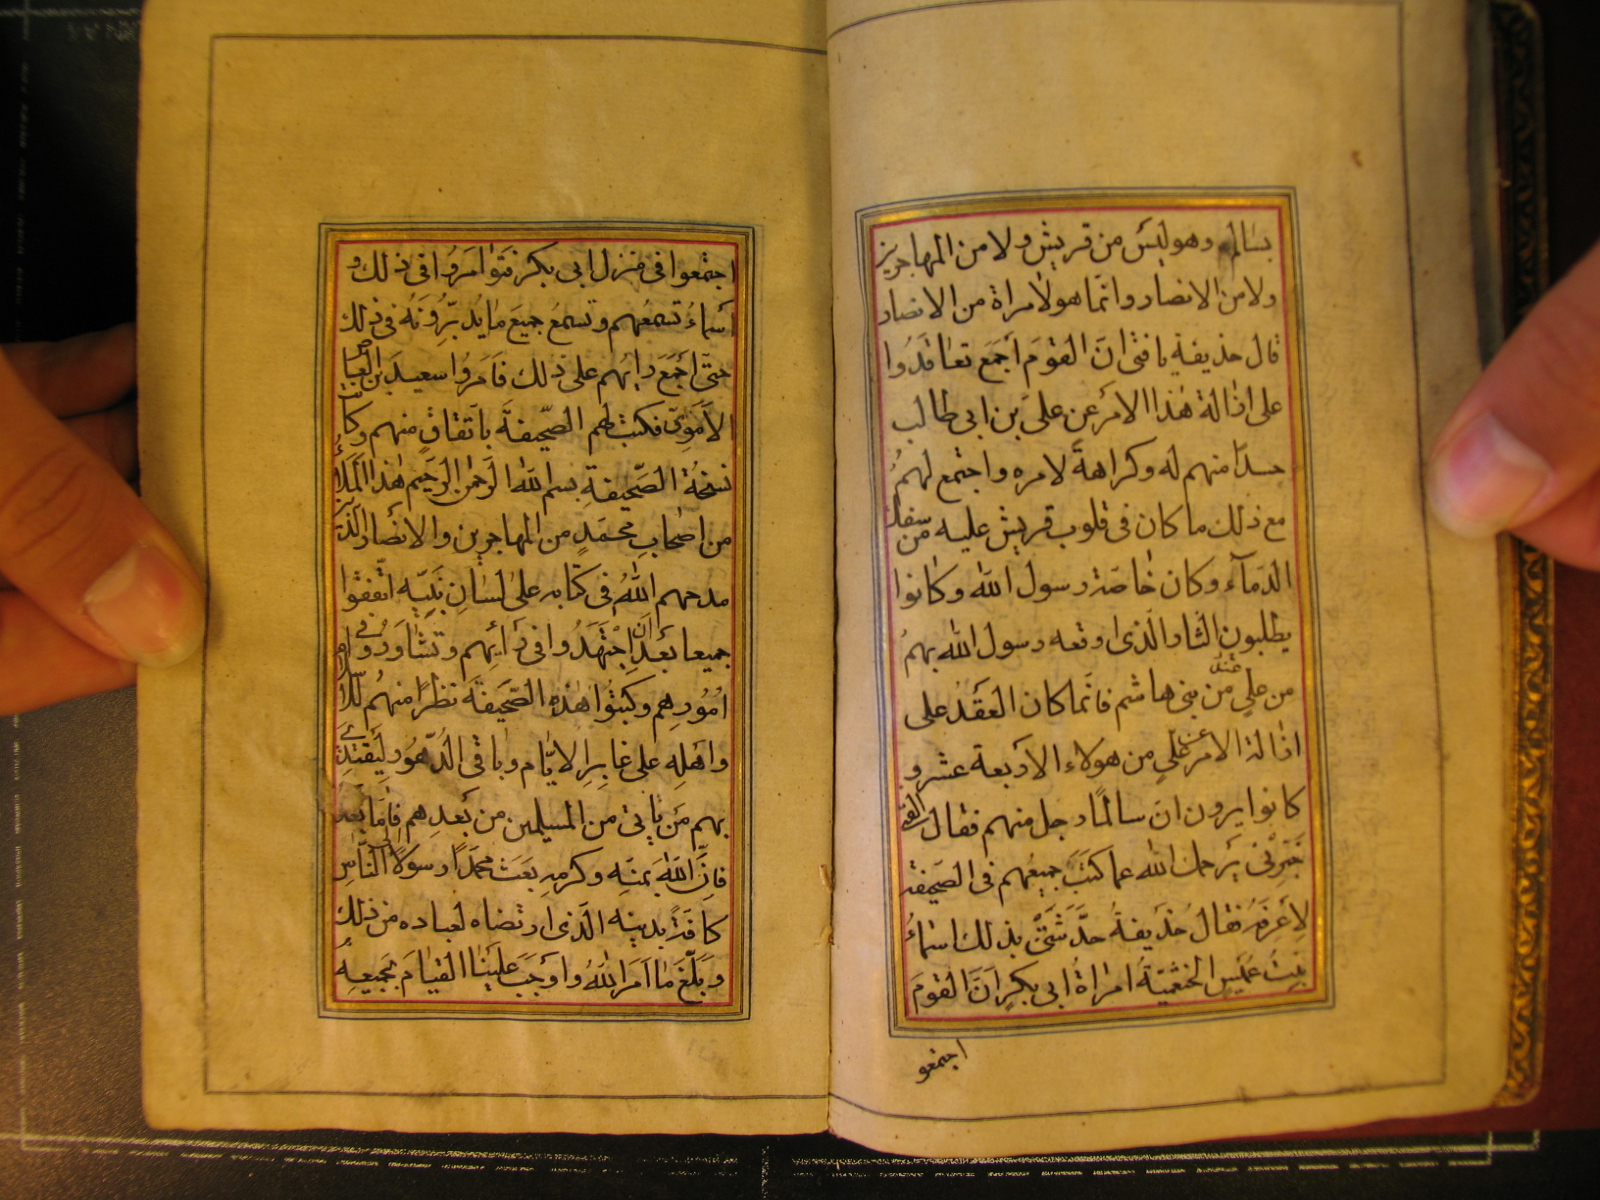 بسالم وهو ليس من قريش ولا من المهاجرين
ولا من الانصار وانما هو لامراة من الانصار
قال حذيفة يا فتى انّ القومَ اَجمَع تعاقدُوا
على ازالة هٰذا الامر عن علىّ بن ابى طالب
حسداً منهم له وكراهةً لامره واجتمع لهمُ
مع ذلك ما كان فى قلوب قريش عليه من سفك
الدّمآء وكان خاصّة رسول الله وكانوا
يطلبون الثار الّذى اوقعه رسول الله بهمُ
من علىٍ عند من بنى هاشم فانّما كان العَقدُ على
ازالة الامر عن علىٍ من هولاء الاربعة عشر و
كانوا يرون انّ سالمًا رجل منهم فقال الفتى
خَبِّرْنى يَرحمك الله عما كتَبَ جميعُهم فى الصّحيفة
لِاَعرفَهُ فقال حُذَيفةُ حدَّثَتْنى بذلك اسماءُ
بِنتُ عمَيس الخثعميّةُ امراةُ ابى بكرٍ انّ القومَ
اجتمعو
اجتمعوا فى منزل ابى بكر فتوامَرُوا فى ذلك و
اسماءُ تسمعُهم وتسمعُ جميعَ ما يُدبِّرُونهُ فى ذلك
حتّى اجَمَعَ رايُهم على ذلك فاَمَرُوا سعيدَ بن العاص
الاَمَوىّ فكتب لهم الصّحيفةَ باتّفاقٍ منهم وكانت
نسخةُ الصّحيفةِ بسم الله الرّحمٰن الرّحيم هٰذا الملاُ
من اصحابِ محمّدٍ من المهاجرين والانصار الّذين
مدحهم اللهُ فى كتابه على لسَانِ نبيّه اتّفقوا
جميعا بعَدَ اَن اجْتَهدُوا فى رَايهم وتشاوَرُوا فى
اُمُورِهم وكتبُوا هٰذه الصّحيفَة نظرًا منهُم للاسلام
واَهلِه على غابِرِ الايّام وباقى الدّهُور ليَقتدِىَ
بهم مَن ياتى من المسلمين من بَعدِهم اَمّا بَعد
فاِنّ اللهَ بمنّه وكرمِه بعَثَ محمّدًا رسولاً الى النّاسِ
كافّةً بدينه الّذى ارتضاه لعباده من ذلك
وبَلّغَ مٰا اَمَرَ اللهُ واوجَبَ علينٰا القيٰامَ بجميعه